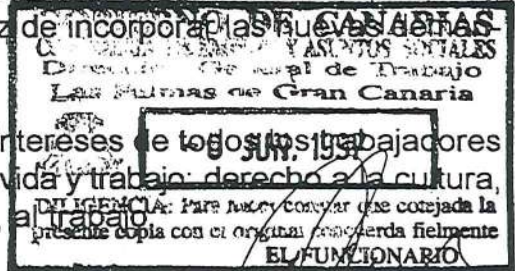 GOBIERNO DE CANARIAS
z de incorporar las nuevas deman-
Y ASUNTOS SOCIALES
Dirección General de Trabajo
Las Palmas de Gran Canaria
ntereses de todos los trabajadores
JUN.
vida y trabajo: derecho a la cultura,
DILIGENCIA: Para hacer constar que cotejada la
al trabajo
presente copia con el original concuerda fielmente
EL FUNCIONARIO